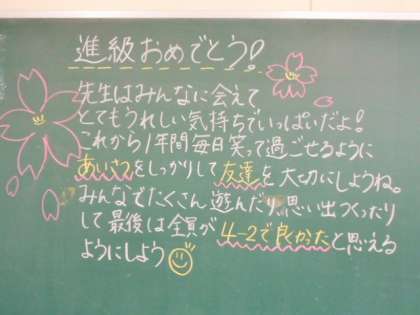 進級おめでとう!
先生はみんなに会えて
とてもうれしい気持ちでいっぱいだよ!
これから1年間毎日笑って過ごせるように
あいさつをしっかりして友達を大切にしようね。
みんなでたくさん遊んだり、思い出つくったり
して最後は全員が4-2で良かったと思える
ようにしよう